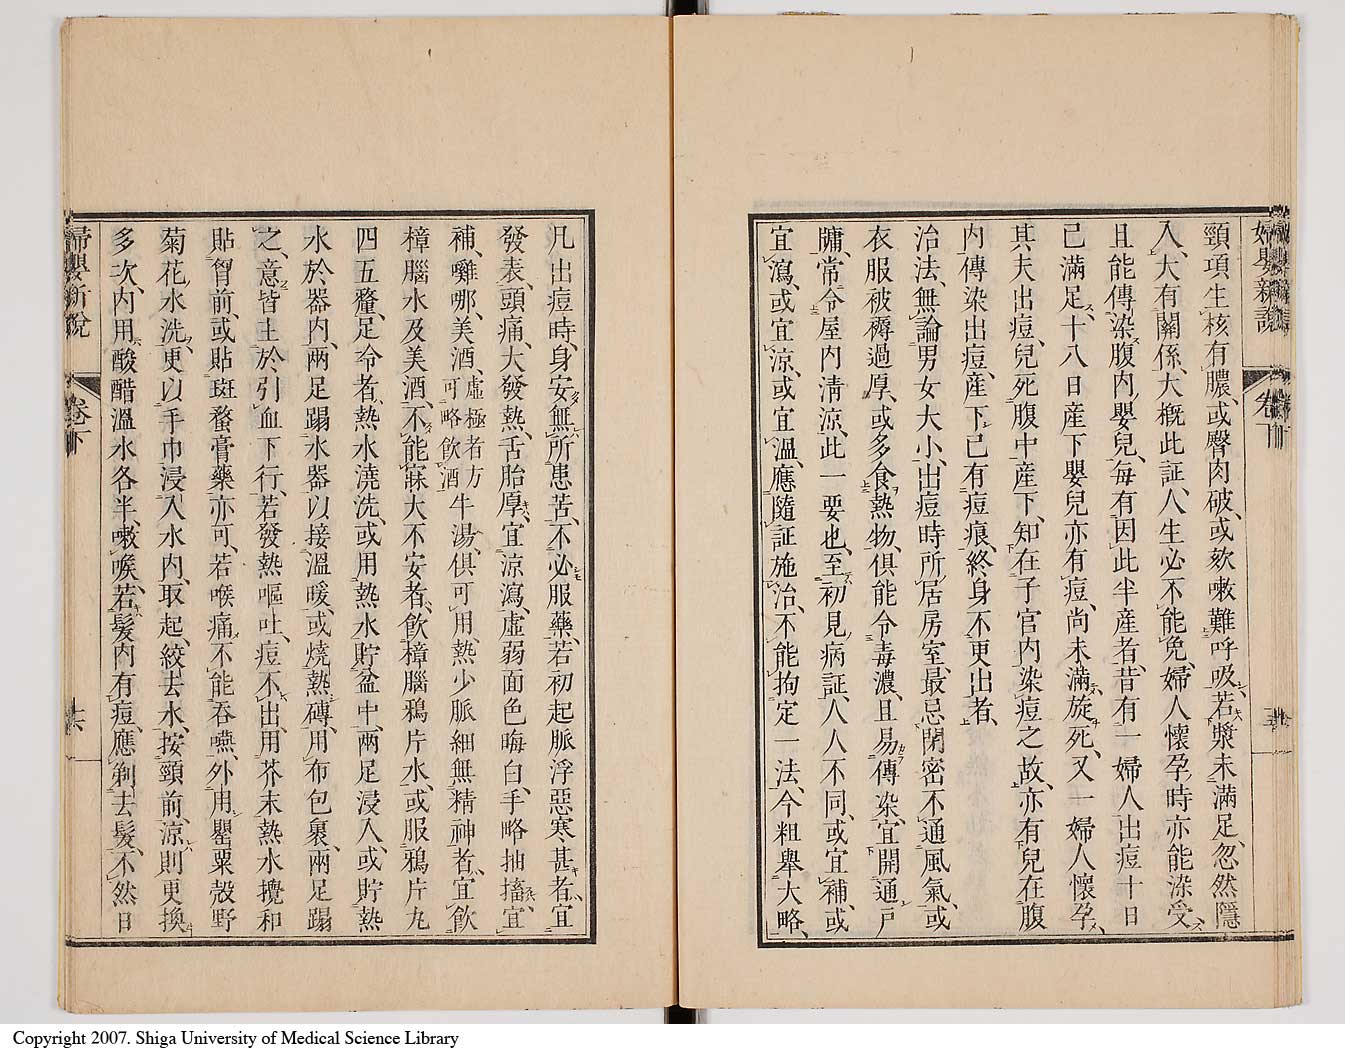 婦嬰新說
卷下
頸項生核有膿、或臀肉破、或欬嗽難呼吸、若漿未滿足、忽然隱
入、大有關係、大槪此証、人生必不能免、婦人懷孕時亦能染受、
且能傳染腹內嬰兒、每有因此半產者、昔有一婦人出痘十日
已滿足、十八日產下嬰兒亦有痘、尚未滿旋死、又一婦人懷孕、
其夫出痘、兒死腹中產下、知在子宮內染痘之故、亦有兒在腹
內傳染出痘、產下已有痘痕、終身不更出者、
治法、無論男女大小、出痘時所居房室、最忌閉密不通風氣、或
衣服被褥過厚、或多食熱物、俱能令毒濃、且易傳染、宜開通戶
牗、常令屋內清涼、此一要也、至初見病証、人人不同、或宜補、或
宜瀉、或宜涼、或宜溫、應隨証施治、不能拘定一法、今粗舉大略、
凡出痘時、身安無所患苦、不必服藥、若初起脈浮惡寒甚者、宜
發表、頭痛、大發熱、舌胎厚、宜涼瀉、虛弱面色晦白、手略抽搐、宜
補、囄哪、美酒、虛極者方可略飲酒牛湯、俱可用、熱少脈細無精神者、宜飲
樟腦水及美酒、不能寐大不安者、飲樟腦鴉片水、或服鴉片丸
四五釐、足冷者、熱水澆洗、或用熱水貯盆中、兩足浸入、或貯熱
水於器內、兩足蹋水器以接溫暖、或燒熱磚、用布包裹、兩足蹋
之、意皆主於引血下行、若發熱嘔吐、痘不出、用芥末熱水攪和
貼胷前、或貼斑蝥膏藥亦可、若喉痛不能吞嚥、外用罌粟殻野
菊花水洗、更以手巾浸入水內、取起、絞去水、按頸前、涼則更換
多次、內用酸醋溫水各半、嗽喉、若髮內有痘、應剃去髮、不然日
婦嬰新說
卷下
十六
Copyright 2007. Shiga University of Medical Science Library